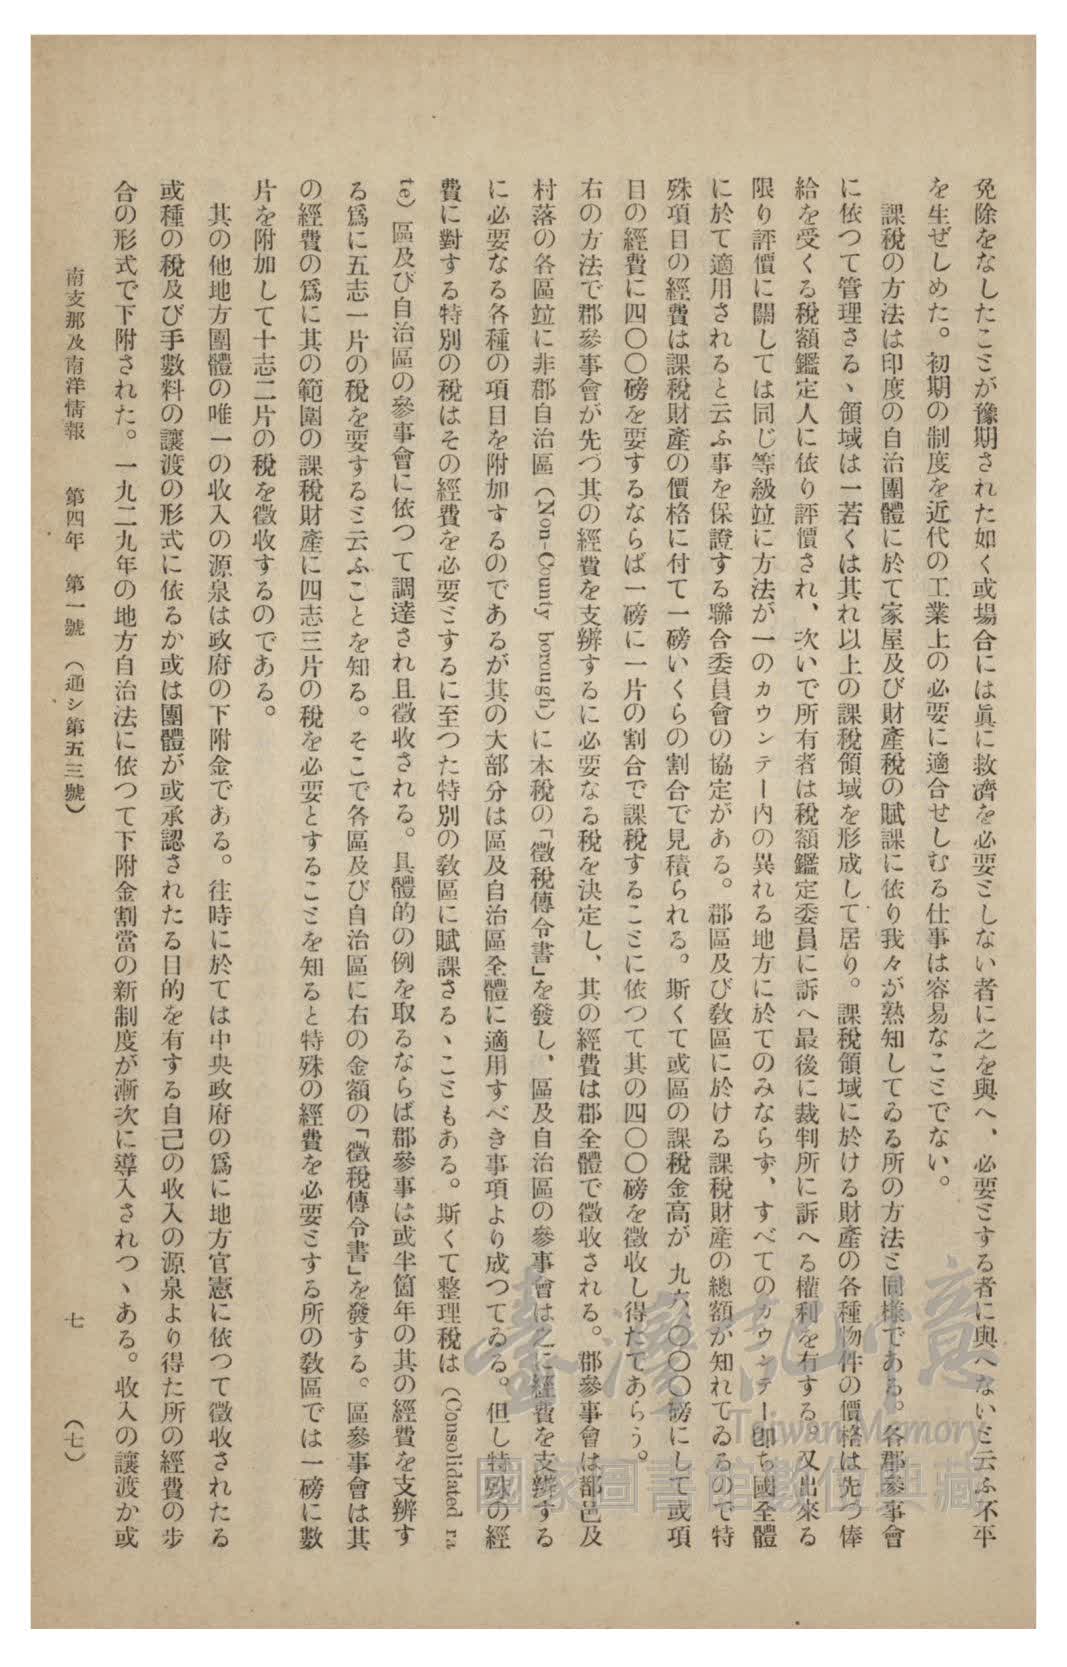 免除をなしたことが豫期された如く或場合には眞に救濟を必要としない者に之を與へ、必要とする者に與へないと云ふ不平
を生ぜしめた。初期の制度を近代の工業上の必要に適合せしむる仕事は容易なことでない。
課稅の方法は印度の自治團體に於て家屋及び財產稅の賦課に依り我々が熟知してゐる所の方法と同樣である。各郡參事會
に依つて管理さるゝ領域は一若くは其れ以上の課稅領域を形成して居り。課稅領域に於ける財產の各種物件の價格は先つ俸
給を受くる稅額鑑定人に依り評價され、次いで所有者は稅額鑑定委員に訴へ最後に裁判所に訴へる權利を有する。又出來る
限り評價に關しては同じ等級竝に方法が一のカウンテー内の異れる地方に於てのみならず、すべてのカウンテー卽ち國全體
に於て適用されると云ふ事を保證する聯合委員會の協定がある。郡區及び敎區に於ける課稅財產の總額が知れてゐるので特
殊項目の經費は課稅財產の價格に付て一磅いくらの割合で見積られる。斯くて或區の課稅金高が 九六、〇〇〇磅にして或項
目の經費に四〇〇磅を要するならば一磅に一片の割合で課稅することに依つて其の四〇〇磅を徵收し得たであらう。
右の方法で郡參事會が先づ其の經費を支辨するに必要なる稅を決定し、其の經費は郡全體で徵收される。郡參事會は都邑及
村落の各區竝に非郡自治區（Non-County borough）に本稅の「徵稅傳令書」を發し、區及自治區の參事會は之に經費を支辨する
に必要なる各種の項目を附加するのであるが其の大部分は區及自治區全體に適用すべき事項より成つてゐる。但し特殊の經
費に對する特別の稅はその經費を必要とするに至つた特別の敎區に賦課さるゝこともある。斯くて整理稅は（Consolidated ra
te）區及び自治區の參事會に依つて調達され且徵收される。具體的の例を取るならば郡參事は或半箇年の其の經費を支辨す
る爲に五志一片の稅を要すると云ふことを知る。そこで各區及び自治區に右の金額の「徵稅傳令書」を發する。區參事會は其
の經費の爲に其の範圍の課稅財產に四志三片の稅を必要とすることを知ると特殊の經費を必要とする所の敎區では一磅に數
片を附加して十志二片の稅を徵收するのである。
其の他地方團體の唯一の收入の源泉は政府の下附金である。往時に於ては中央政府の爲に地方官憲に依つて徵收されたる
或種の稅及び手數料の讓渡の形式に依るか或は團體が或承認されたる目的を有する自己の收入の源泉より得た所の經費の步
合の形式で下附された。一九二九年の地方自治法に依つて下附金割當の新制度が漸次に導入されつゝある。收入の讓渡か或
南支那及南洋情報 第四年 第一號 （通シ第五三號） 七 （七）
臺灣記憶
Taiwan Memory
國家圖書館數位典藏